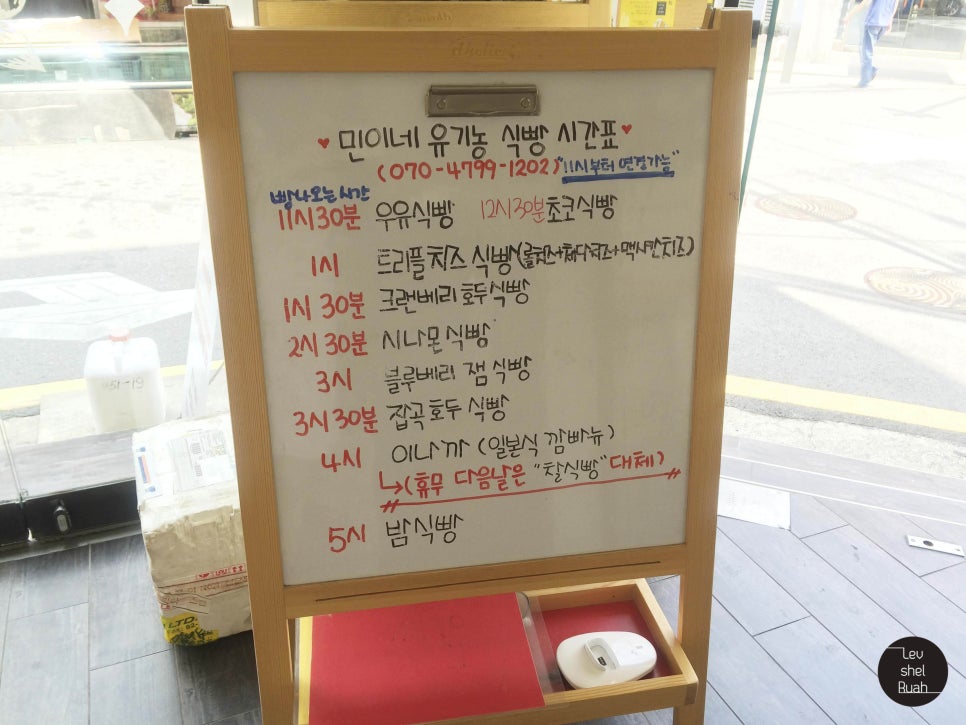 dholic
♥ 민이네 유기농 식빵 시간표 ♥
(070-4799-1202) "11시부터 연결가능"
빵나오는시간
11시30분 우유식빵 12시30분 초코식빵
1시 트리플치즈 식빵(롤치즈+체다치즈+맥시칸치즈)
1시 30분 크런베리 호두식빵
2시 30분 시나몬 식빵
3시 블루베리 잼 식빵
3시 30분 잡곡호두 식빵
4시 이나까 (일본식 깜빠뉴)
↳(휴무 다음날은 "찰식빵" 대체)
5시 밤식빵
LTD.
Lev
shel
Ruah